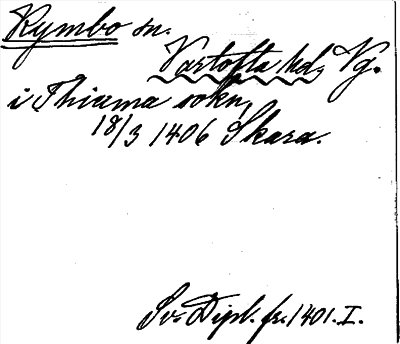 Kymbo sn.
Vartofta hd, Vg.
i Thiuma sokn,
18/3 1406 Skara.
Sv. Dipl. fr. 1401. I.